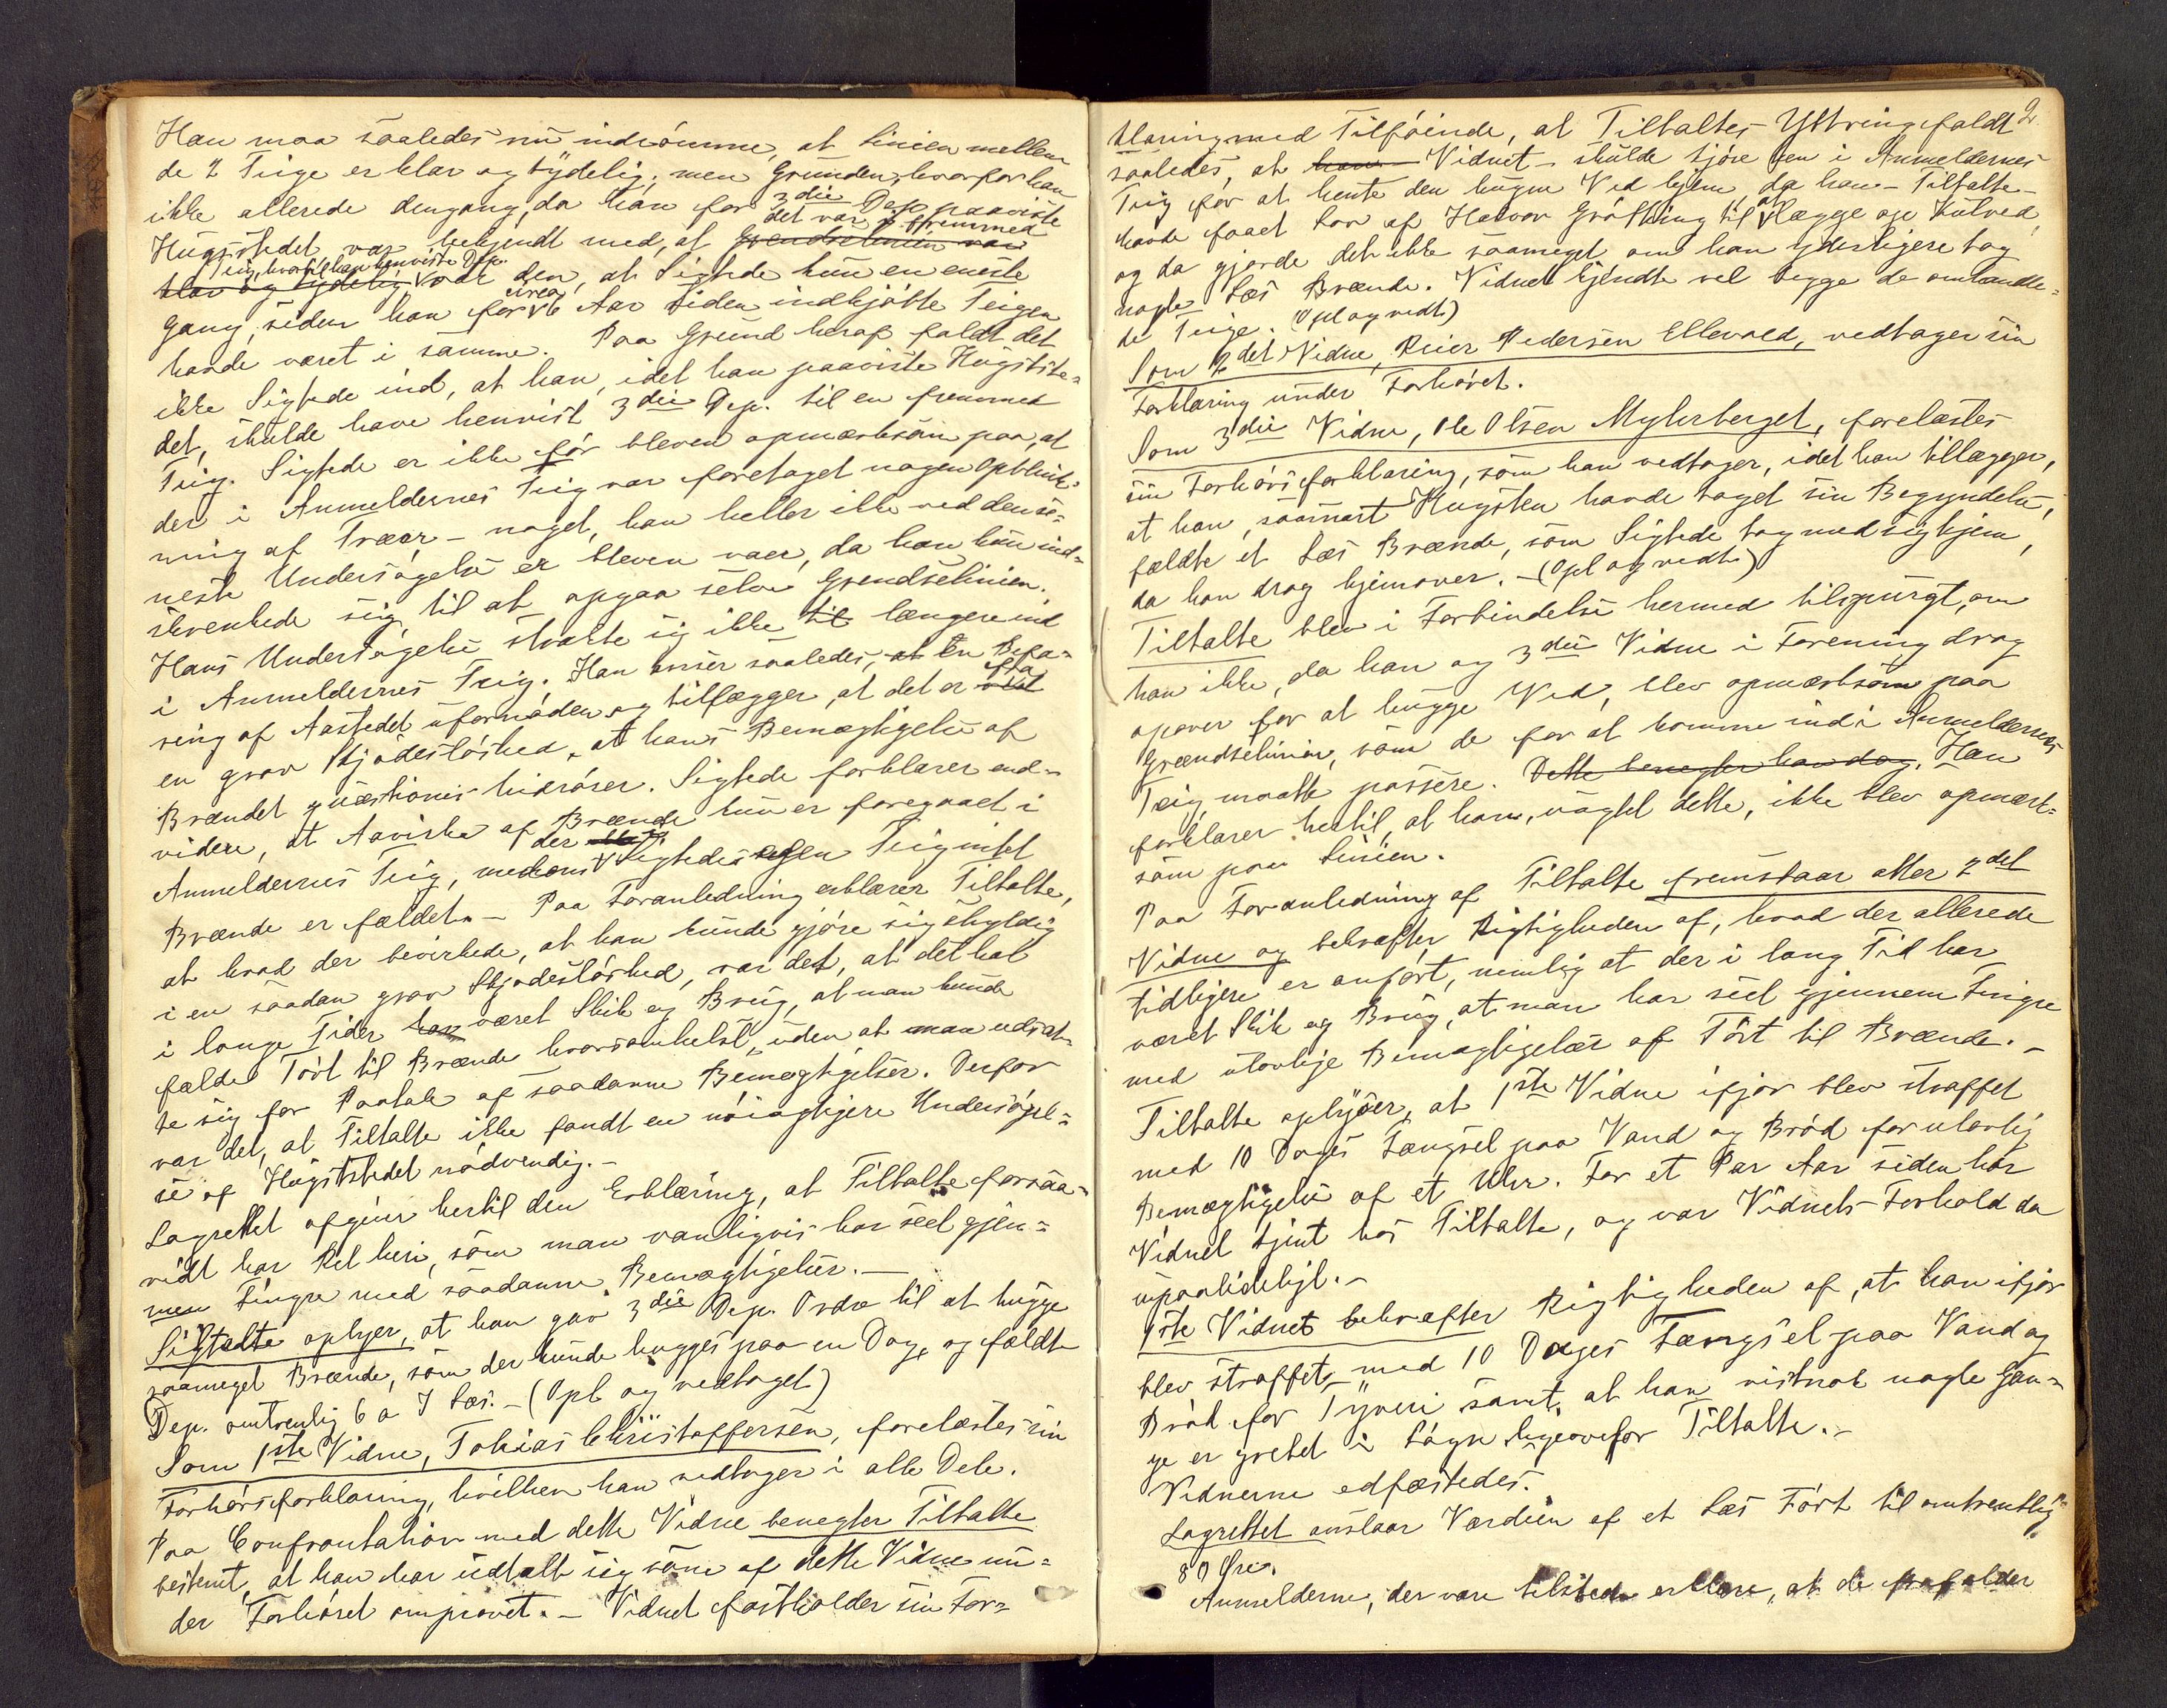 Han maa saaledes nu indrømme, at Linien mellem
de 2 Teige er klar og tydelig; men Grunden, hvorfor han
ikke allerede dengang, da han for 3die Dep. paaviste
det var en fremmed
Hugststedet var bekjendt med, at Grendselinien var
Teig, hvortil han henviste Dep.
klar og tydelig var den, at Sigtede kun en eneste
circa
Gang, siden han for 16 Aar siden indkjøbte Teigen
havde været i samme. Paa Grund heraf faldt det
ikke Sigtede ind, at han, idet han paaviste Hugstste-
det, skulde have henvist 3die Dep. til en fremmed
Teig. Sigtede er ikke før bleven opmærksom paa, at
der i Anmeldernes Teig var foretaget nogen Opblink-
ning af Træer – noget, han heller ikke ved den se-
neste Undersøgelse er bleven vaer, da han kun ind-
skrenkede sig til at opgaa selve Grendselinien.
Hans Undersøgelse strakte sig ikke til længere ind
i Anmeldernes Teig. Han anser saaledes, at en Befa-
ring af Aastedet ufornøden og tilføgger, at det er vist
fra
en grov Skjødesløshed, at hans Bemægtigelse af
Brændet quæstionis hidrører. Sigtede forklarer end-
videre, at Aavirke af Brænde kun er foregaaet i
der
Anmeldernes Teig, medens i Sigtedes egen Teig intet
Brænde er fældet. – Paa Foranledning erklærer Tiltalte,
at hvad der bevirkede, at han kunde gjøre sig skyldig
i en saadan grov Skjødesløshed, var det, at det hat
i lange Tider har været Skik og Brug, at man kunde
fælde Tørt til Brænde hvorsomhelst, uden at man udsat-
te sig for Paatale af saadanne Bemægtigelser. Derfor
var det, at Tiltalte ikke fandt en nøiagtigere Undersøgel-
se af Hugststedet nødvendig. –
Lagrettet afgiver hertil den Erklæring, at Tiltalte forsaa-
vidt har Ret heri, som man vanligvis har seet gjen-
nem Fingre med saadanne Bemægtigelser. –
Sigtedte oplyser, at han gav 3die Dep. Ordre til at hugge
saameget Brænde, som der kunde hugges paa en Dag, og fældte
Dep. omtrentlig 6 a 7 Læs. – (Opl. og vedtaget)
Som 1ste Vidne, Tobias Christoffersen, forelæstes sin
Forhørsforklaring, hvilken han vedtager i alle Dele.
Paa Confrontation med dette Vidne benegter Tiltalte
bestemt, at han har udtalt sig som af dette Vidne un-
der Forhøret omprovet. – Vidnet fastholder sin For-
2
klaring med Tilføiende, at Tiltaltes Yttring faldt
saaledes, at han Vidnet – skulde kjøre hen i Anmeldernes
Teig for at hente den hugne Ved hjem, da han – Tiltalte –
at
havde faaet Lov af Halvor Grøtting til lægge op Kulved,
og da gjorde det ikke saameget, om han yderligere tog
nogle Læs Brænde. Vidnet kjendte vel begge de omhandle-
de Teige. (Opl og vedt)
Som 2det Vidne, Peier Pedersen Ellevold, vedtager sin
Forklaring under Forhøret.
Som 3die Vidne, Ole Olsen Myhrberget, forelæstes
sin Forhørsforklaring, som han vedtager, idet han tillægger,
at han, saasnart Hugsten havde taget sin Begyndelse,
fældte et Læs Brænde, som Sigtede tog med sig hjem,
da han drog hjemover. – (Opl og vedt)
Tiltalte blev i Forbindelse hermed tilspurgt, om
han ikke, da han og 3die Vidne i Forening drog
opover for at hugge Ved, blev opmærksom paa
Grændselinien, som de for at komme ind i Anmeldernes
Teig maatte passere. Dette benegter han dog. Han
forklarer hertil, at han, uagtet dette, ikke blev opmærk-
som paa Linien.
Paa Foranledning af Tiltalte fremstaar atter 2det
Vidne og bekræfter Rigtigheden af, hvad der allerede
tidligere er anført, nemlig at der i lang Tid har
været Skik og Brug, at man har seet gjennem Fingre
med ulovlige Bemægtigelser af Tørt til Brænde. –
Tiltalte oplyser, at 1ste Vidne ifjor blev straffet
med 10 Dages Fængsel paa Vand og Brød for ulovlig
Bemægtigelse af et Uhr. For et Par Aar siden har
Vidnet tjent hos Tiltalte, og var Vidnets Forhold da
upaalideligt. –
1ste Vidnet bekræfter Rigtigheden af, at han ifjor
blev straffet med 10 Dages Fængsel paa Vand og
Brød for Tyveri samt, at han vistnok nogle Gan-
ge er grebet i Løgn ligeoverfor Tiltalte. –
Vidnerne edfæstedes.
Lagrettet anslaar Værdien af et Læs Tørt til omtrentlig
80 Øre.
Anmelderne, der vare tilstede erklære, at de frafalder